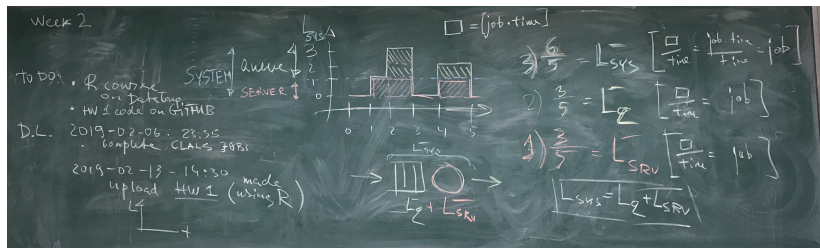 Week 2
TO DO:
• R course
on Datacamp
• HW1 code on GITHUB
D.L. 2019-02-06 : 23:55
• complete CLASS JOBS
2019-02-13 - 14:30
upload HW1 (made using R)
L
t
SYSTEM
QUEUE
SERVER
L SYS
3
2
1
0
0 1 2 3 4 5
□ = [job·time]
L̄sys
L̄q + L̄SRV
3) 6/5 = L̄sys [□/time = job·time/time = job]
2) 3/5 = L̄q [□/time = job]
1) 3/5 = L̄SRV [□/time = job]
L̄sys = L̄q + L̄SRV